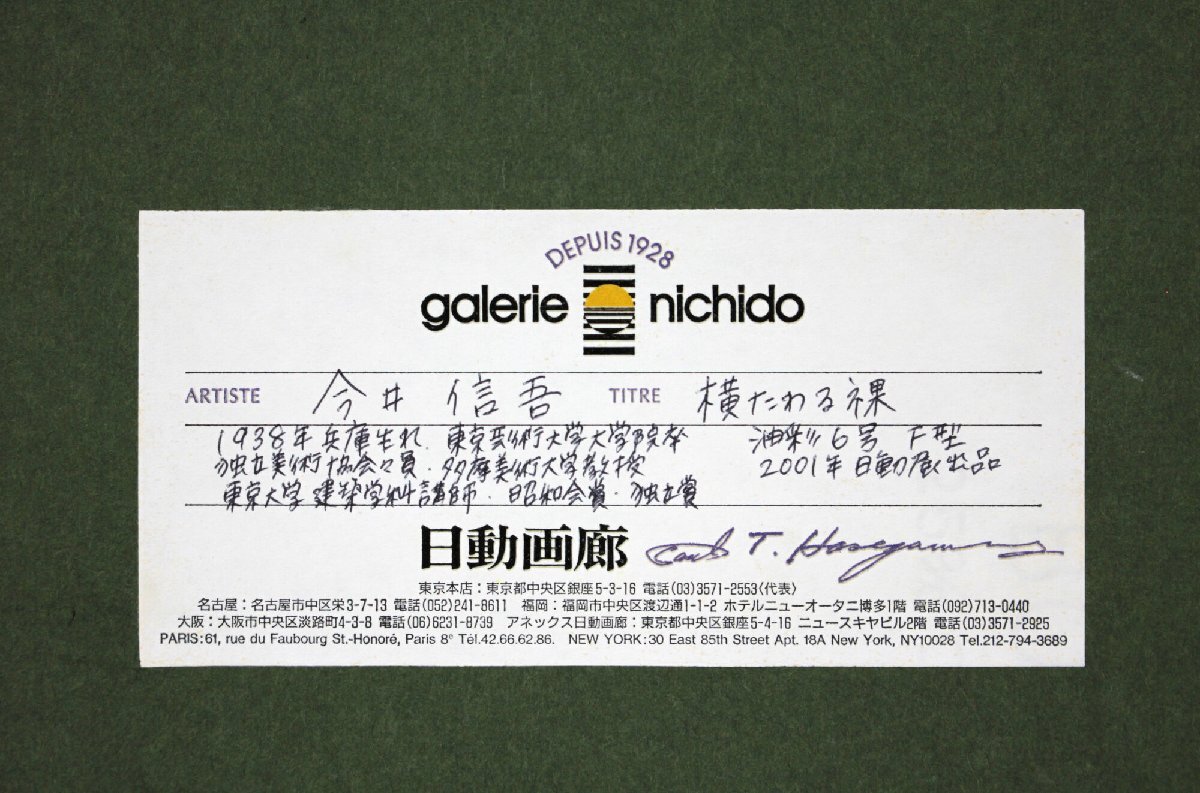 DEPUIS 1928
galerie nichido
ARTISTE 今井 信吾 TITRE 横たわる裸
1938年兵庫生れ. 東京芸術大学大学院卒 油彩 6号 F型
独立美術協会々員・多摩美術大学教授 2001年日動展出品
東京大学 建築学科講師・昭和会賞・独立賞
日動画廊 T. Hasegawa
東京本店:東京都中央区銀座5-3-16 電話(03)3571-2553〈代表〉
名古屋:名古屋市中区栄3-7-13 電話(052)241-8611 福岡:福岡市中央区渡辺通1-1-2 ホテルニューオータニ博多1階 電話(092)713-0440
大阪:大阪市中央区淡路町4-3-8 電話(06)6231-8739 アネックス日動画廊:東京都中央区銀座5-4-16 ニュースキヤビル2階 電話(03)3571-2925
PARIS:61, rue du Faubourg St.-Honoré, Paris 8e Tél.42.66.62.86. NEW YORK:30 East 85th Street Apt. 18A New York, NY10028 Tel.212-794-3689